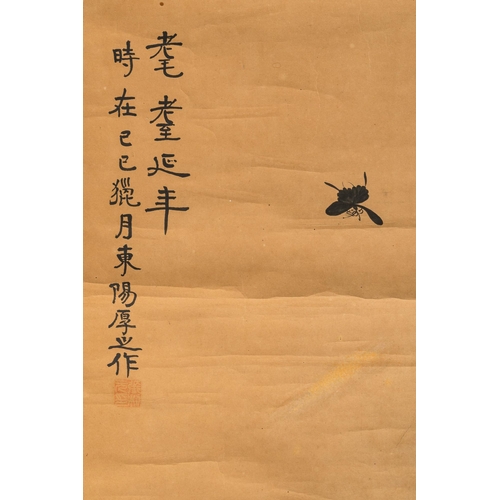 耄耋延年
時在己巳獵月東陽厚之作